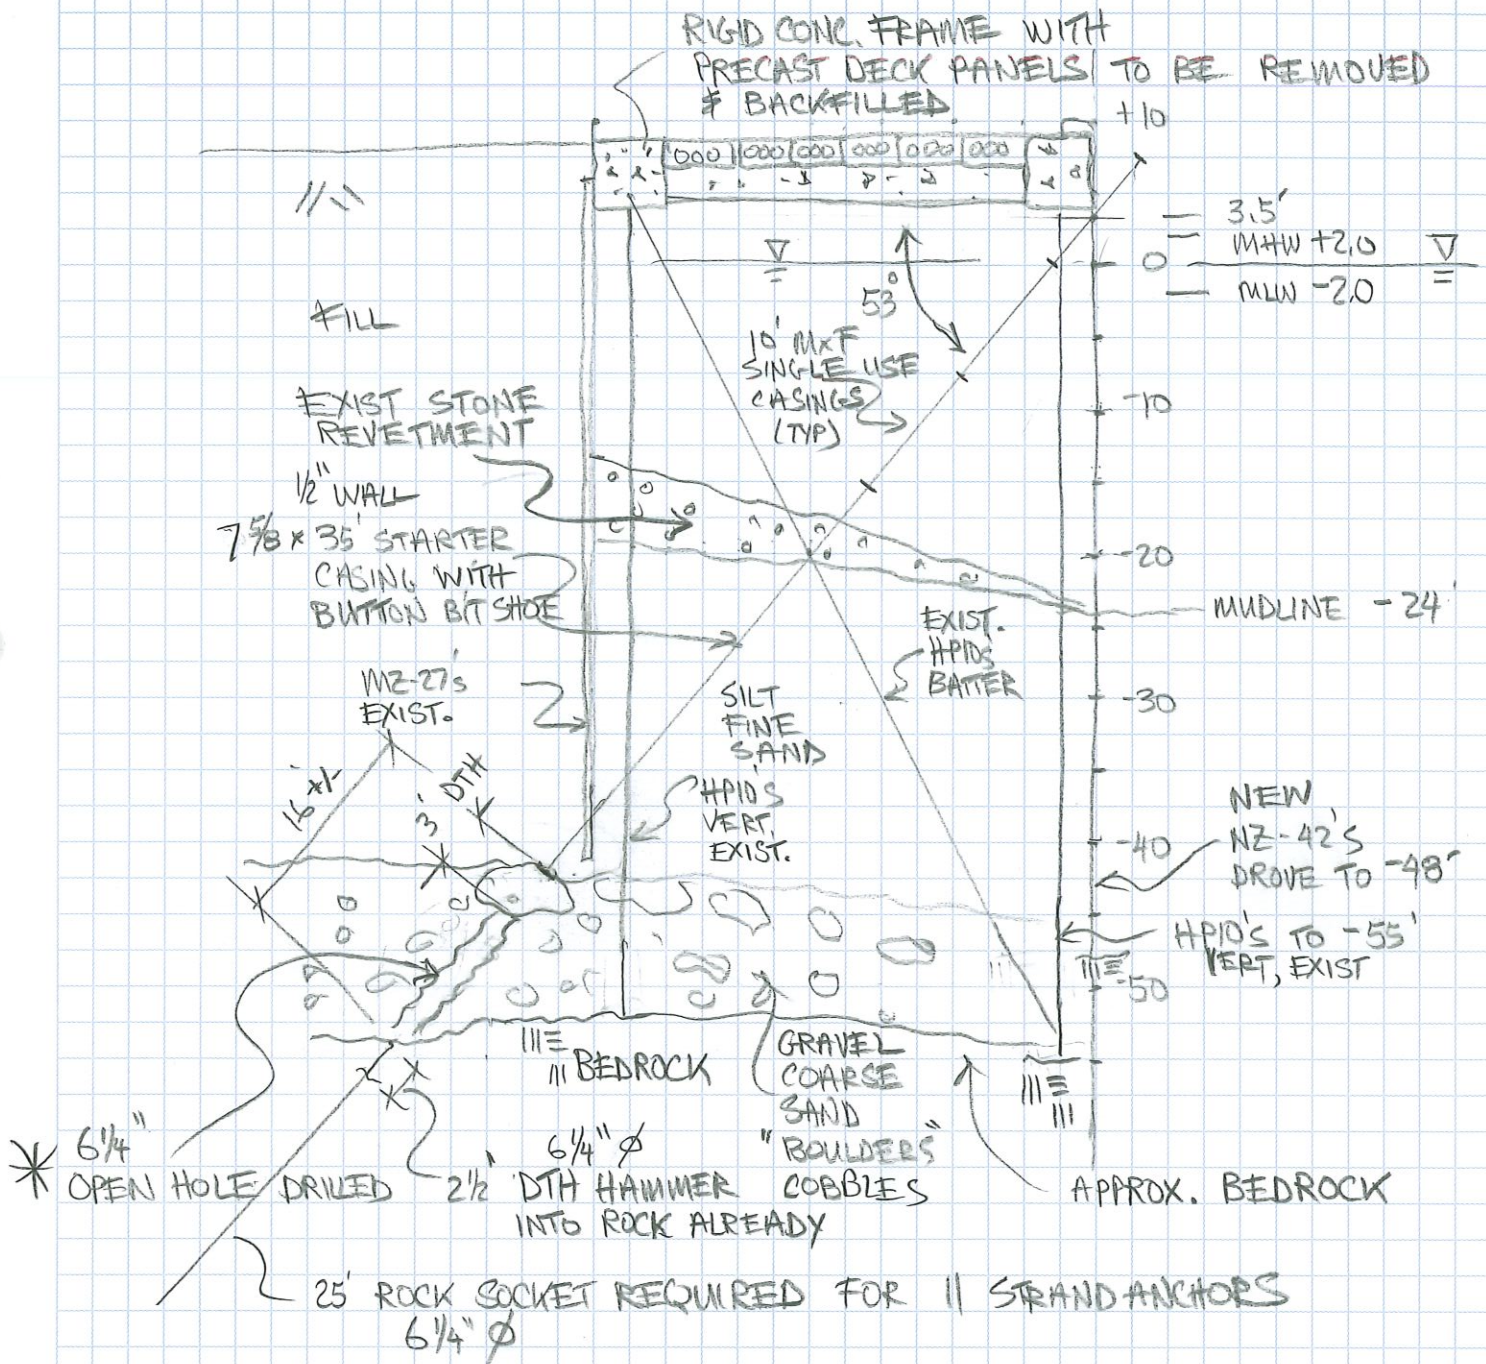 RIGID CONC. FRAME WITH
PRECAST DECK PANELS TO BE REMOVED
& BACKFILLED
+10
000 000 000 000 000 000
3.5'
MHW +2.0
0
MLW -2.0
53°
FILL
10' MxF
SINGLE USE
CASINGS
(TYP)
-10
EXIST STONE
REVETMENT
1/2" WALL
7 5/8 x 35' STARTER
CASING WITH
BUTTON BIT SHOE
-20
MUDLINE -24'
EXIST.
HP10's
BATTER
MZ-27's
EXIST.
SILT
FINE
SAND
-30
16' +/-
3' DTH
HP10'S
VERT.
EXIST.
NEW
NZ-42'S
DROVE TO -48'
-40
HP10'S TO -55'
VERT, EXIST
-50
BEDROCK
GRAVEL
COARSE
SAND
"BOULDERS"
COBBLES
* 6 1/4"
OPEN HOLE DRILLED
2 1/2' 6 1/4" Ø
DTH HAMMER
INTO ROCK ALREADY
APPROX. BEDROCK
25' ROCK SOCKET REQUIRED FOR 11 STRAND ANCHORS
6 1/4" Ø